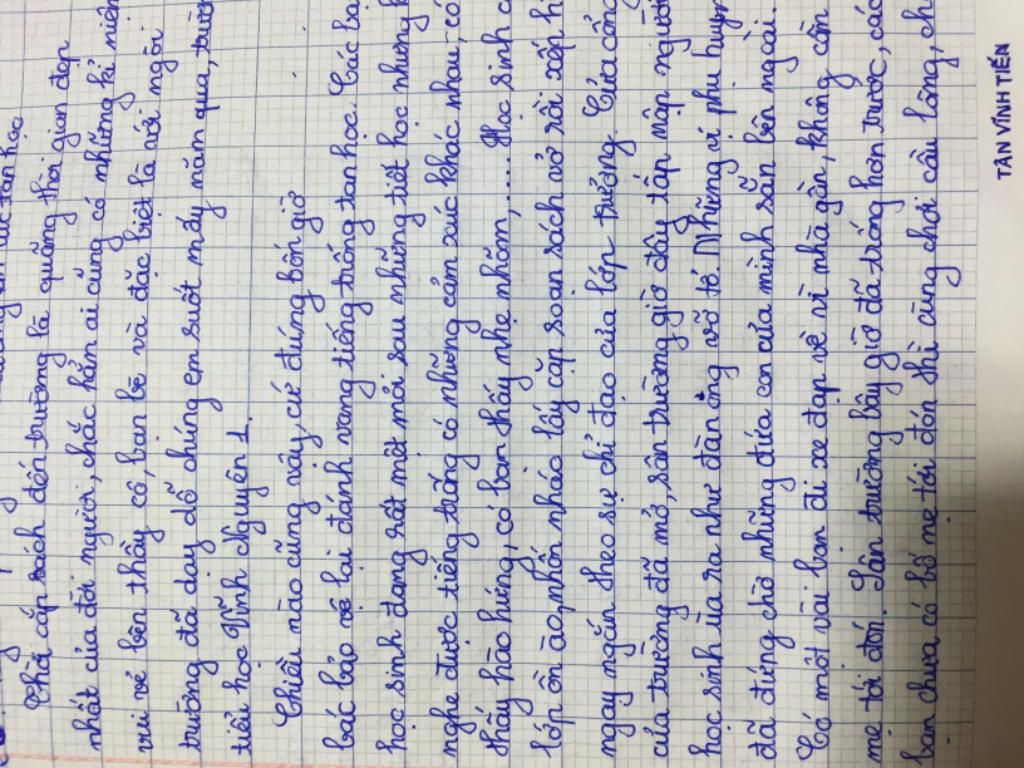 lúc tan học
Thời cắp sách đến trường là quãng thời gian đẹp
nhất của đời người, chắc hẳn ai cũng có những kỉ niệm
vui vẻ bên thầy cô, bạn bè và đặc biệt là với ngôi
trường đã dạy dỗ chúng em suốt mấy năm qua, trường
tiểu học Vĩnh Nguyên 1.
Chiều nào cũng vậy, cứ đúng bốn giờ
bác bảo vệ lại đánh vang tiếng trống tan học. Các bạ
học sinh đang rất mệt mỏi sau những tiết học nhưng k
nghe được tiếng trống có những cảm xúc khác nhau, có
thấy hào hứng, có bạn thấy nhẹ nhõm,... Học sinh c
lớp ồn ào, nhốn nháo lấy cặp soạn sách vở rồi xếp h
ngay ngắn theo sự chỉ đạo của lớp trưởng. Cửa cổng
của trường đã mở, sân trường giờ đây tấp nập người
học sinh ùa ra như đàn ong vỡ tổ. Những vị phụ huyn
đã đứng chờ những đứa con của mình sẵn bên ngoài.
Có một vài bạn đi xe đạp về vì nhà gần, không cần
mẹ tới đón. Sân trường bây giờ đã trống hơn trước, các
bạn chưa có bố mẹ tới đón thì cùng chơi cầu lông, ch
TÂN VĨNH TIẾN